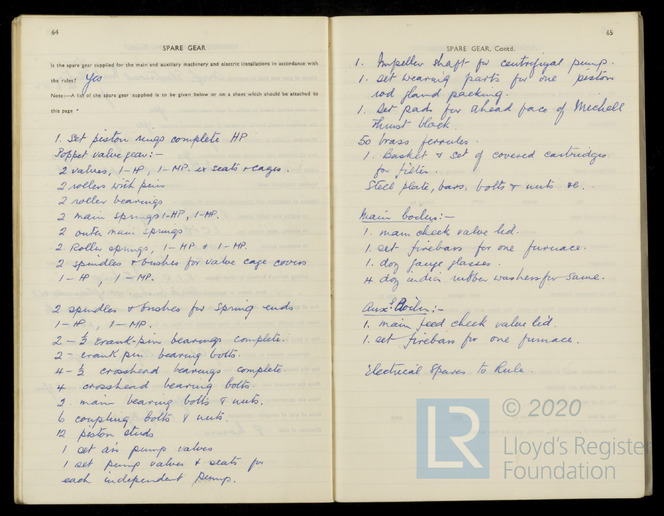 64
SPARE GEAR
Is the spare gear supplied for the main and auxiliary machinery and electric installations in accordance with
the rules? Yes
Note:—A list of the spare gear supplied is to be given below or on a sheet which should be attached to
this page
1. Set piston rings complete HP
Poppet valve gear:-
2 valves, 1-HP, 1-MP. seats & cages.
2 rollers with pins
2 roller bearings
2 main springs 1-HP, 1-MP.
2 outer main springs
2 Roller springs, 1-HP & 1-MP.
2 spindles & bushes for valve cage covers
1-HP, 1-MP.
2 spindles & bushes for spring ends
1-HP, 1-MP.
2-½ crank-pin bearings complete.
2- crank pin bearing bolts.
4-½ crosshead bearings complete
4 crosshead bearing bolts.
2. main bearing bolts & nuts.
6 coupling bolts & nuts.
12 piston studs
1 set air pump valves
1 set pump valves & seats for
each independent pump.
65
SPARE GEAR, Contd.
1. Impeller shaft for centrifugal pump.
1. set wearing parts for one piston
rod gland packing.
1. set pads for ahead face of Michell
thrust block.
50 brass ferrules.
1. basket & set of covered cartridges
for filter.
Steel plate, bars, bolts & nuts &c.
Main boilers:-
1. main check valve lid.
1. set firebars for one furnace.
1. doz gauge glasses.
4 doz india rubber washers for same.
Auxy Boiler:-
1. main feed check valve lid.
1. set firebars for one furnace.
Electrical Spares to Rule.
LR
© 2020
Lloyd's Register
Foundation